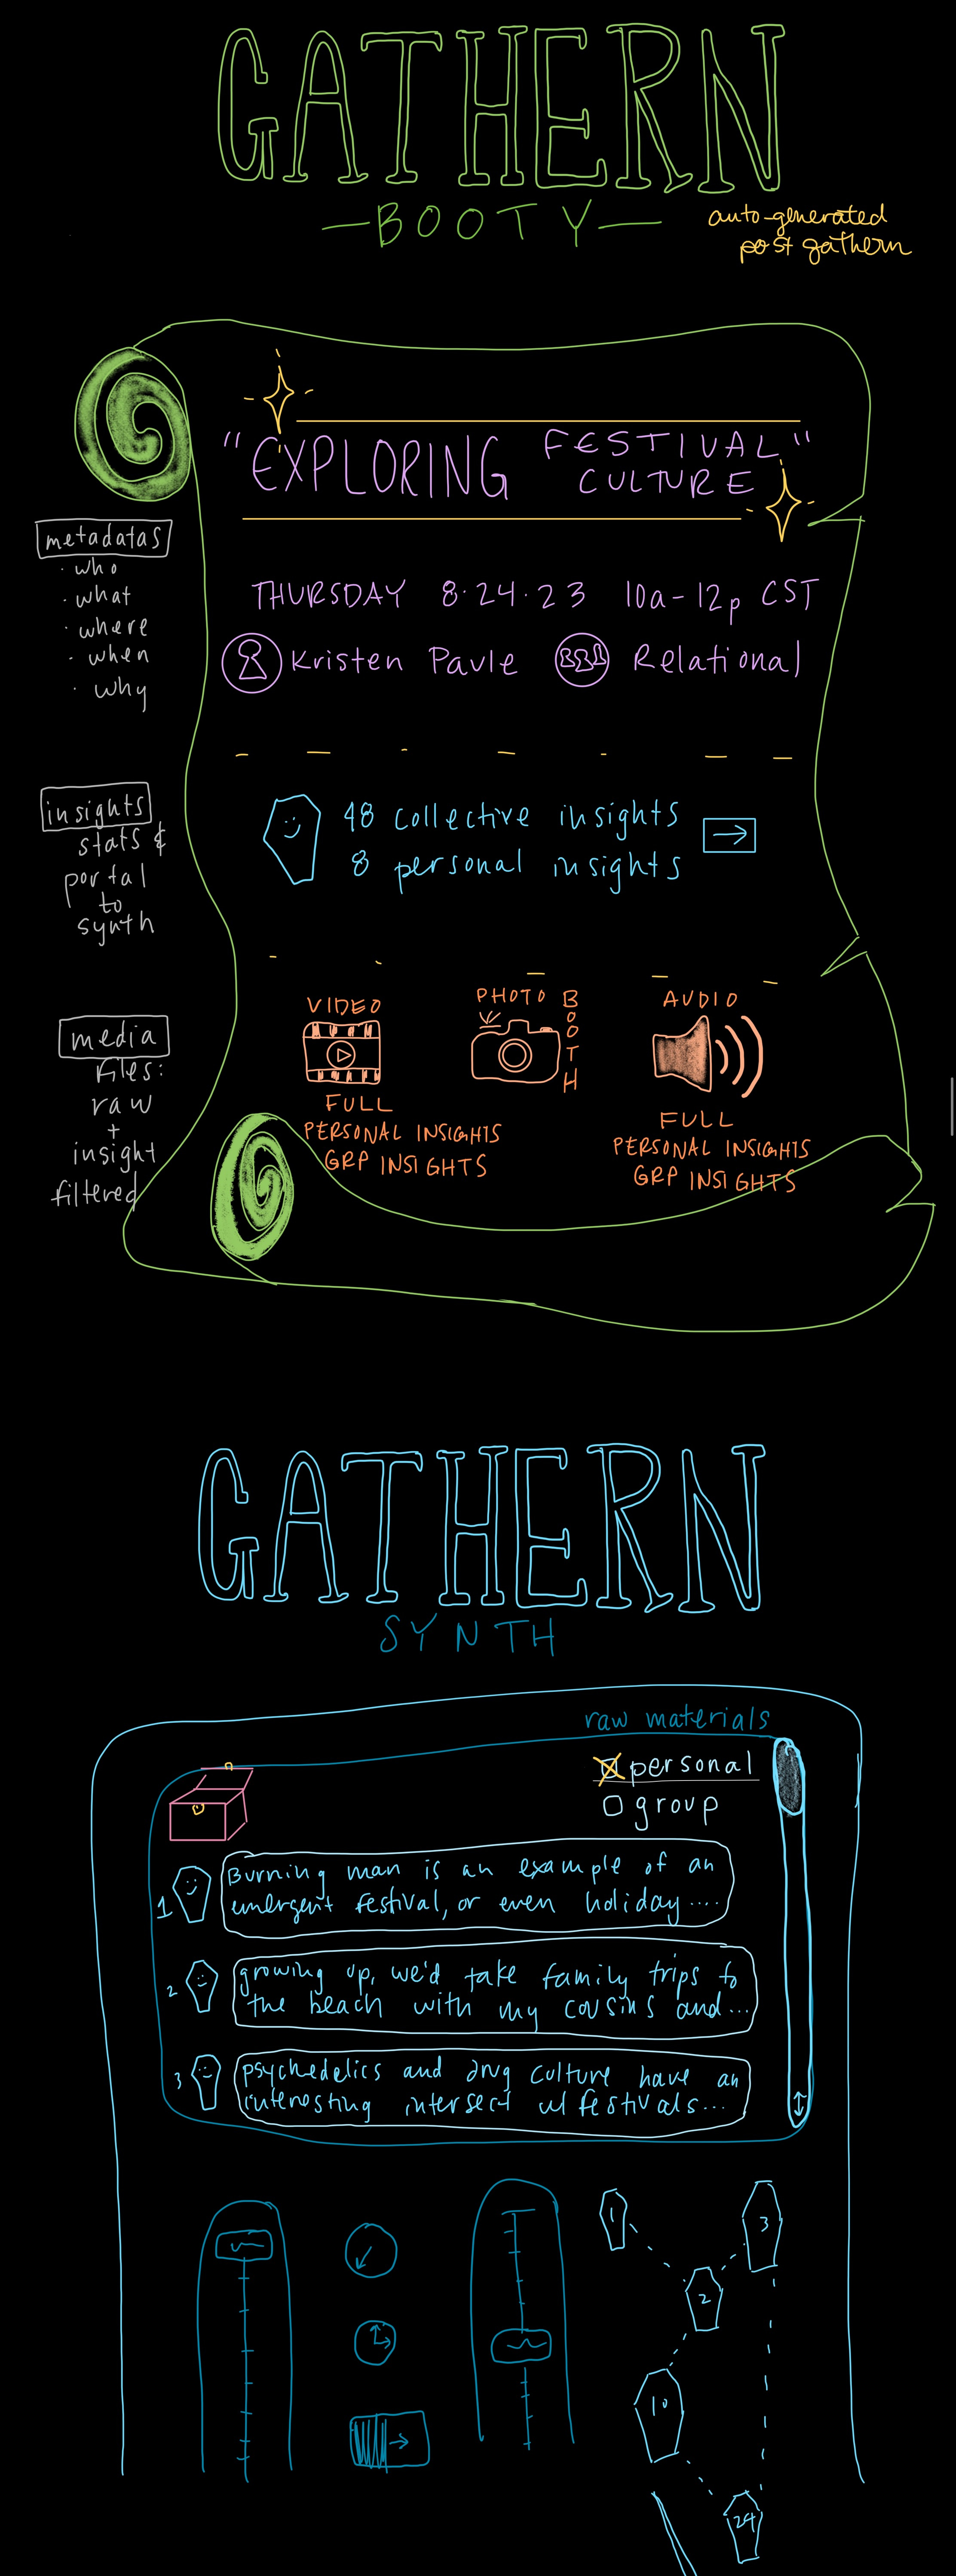 GATHERN
—BOOTY—
auto-generated
post gathern
"EXPLORING FESTIVAL CULTURE"
metadatas
· who
· what
· where
· when
· why
THURSDAY 8·24·23 10a-12p CST
Kristen Pavle Relational
insights
stats &
portal
to
synth
48 collective insights
8 personal insights
media
files:
raw
+
insight
filtered
VIDEO
FULL
PERSONAL INSIGHTS
GRP INSIGHTS
PHOTO BOOTH
AUDIO
FULL
PERSONAL INSIGHTS
GRP INSIGHTS
GATHERN
SYNTH
raw materials
personal
group
1 Burning man is an example of an
emergent festival, or even holiday....
2 growing up, we'd take family trips to
the beach with my cousins and...
3 psychedelics and drug culture have an
interesting intersect w/ festivals...
1
3
2
10
24